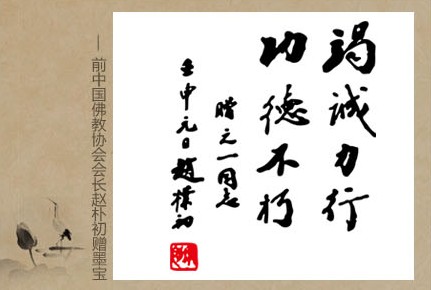 竭诚力行
功德不朽
赠元一同志
壬申元日 趙樸初
—前中国佛教协会会长赵朴初赠墨宝